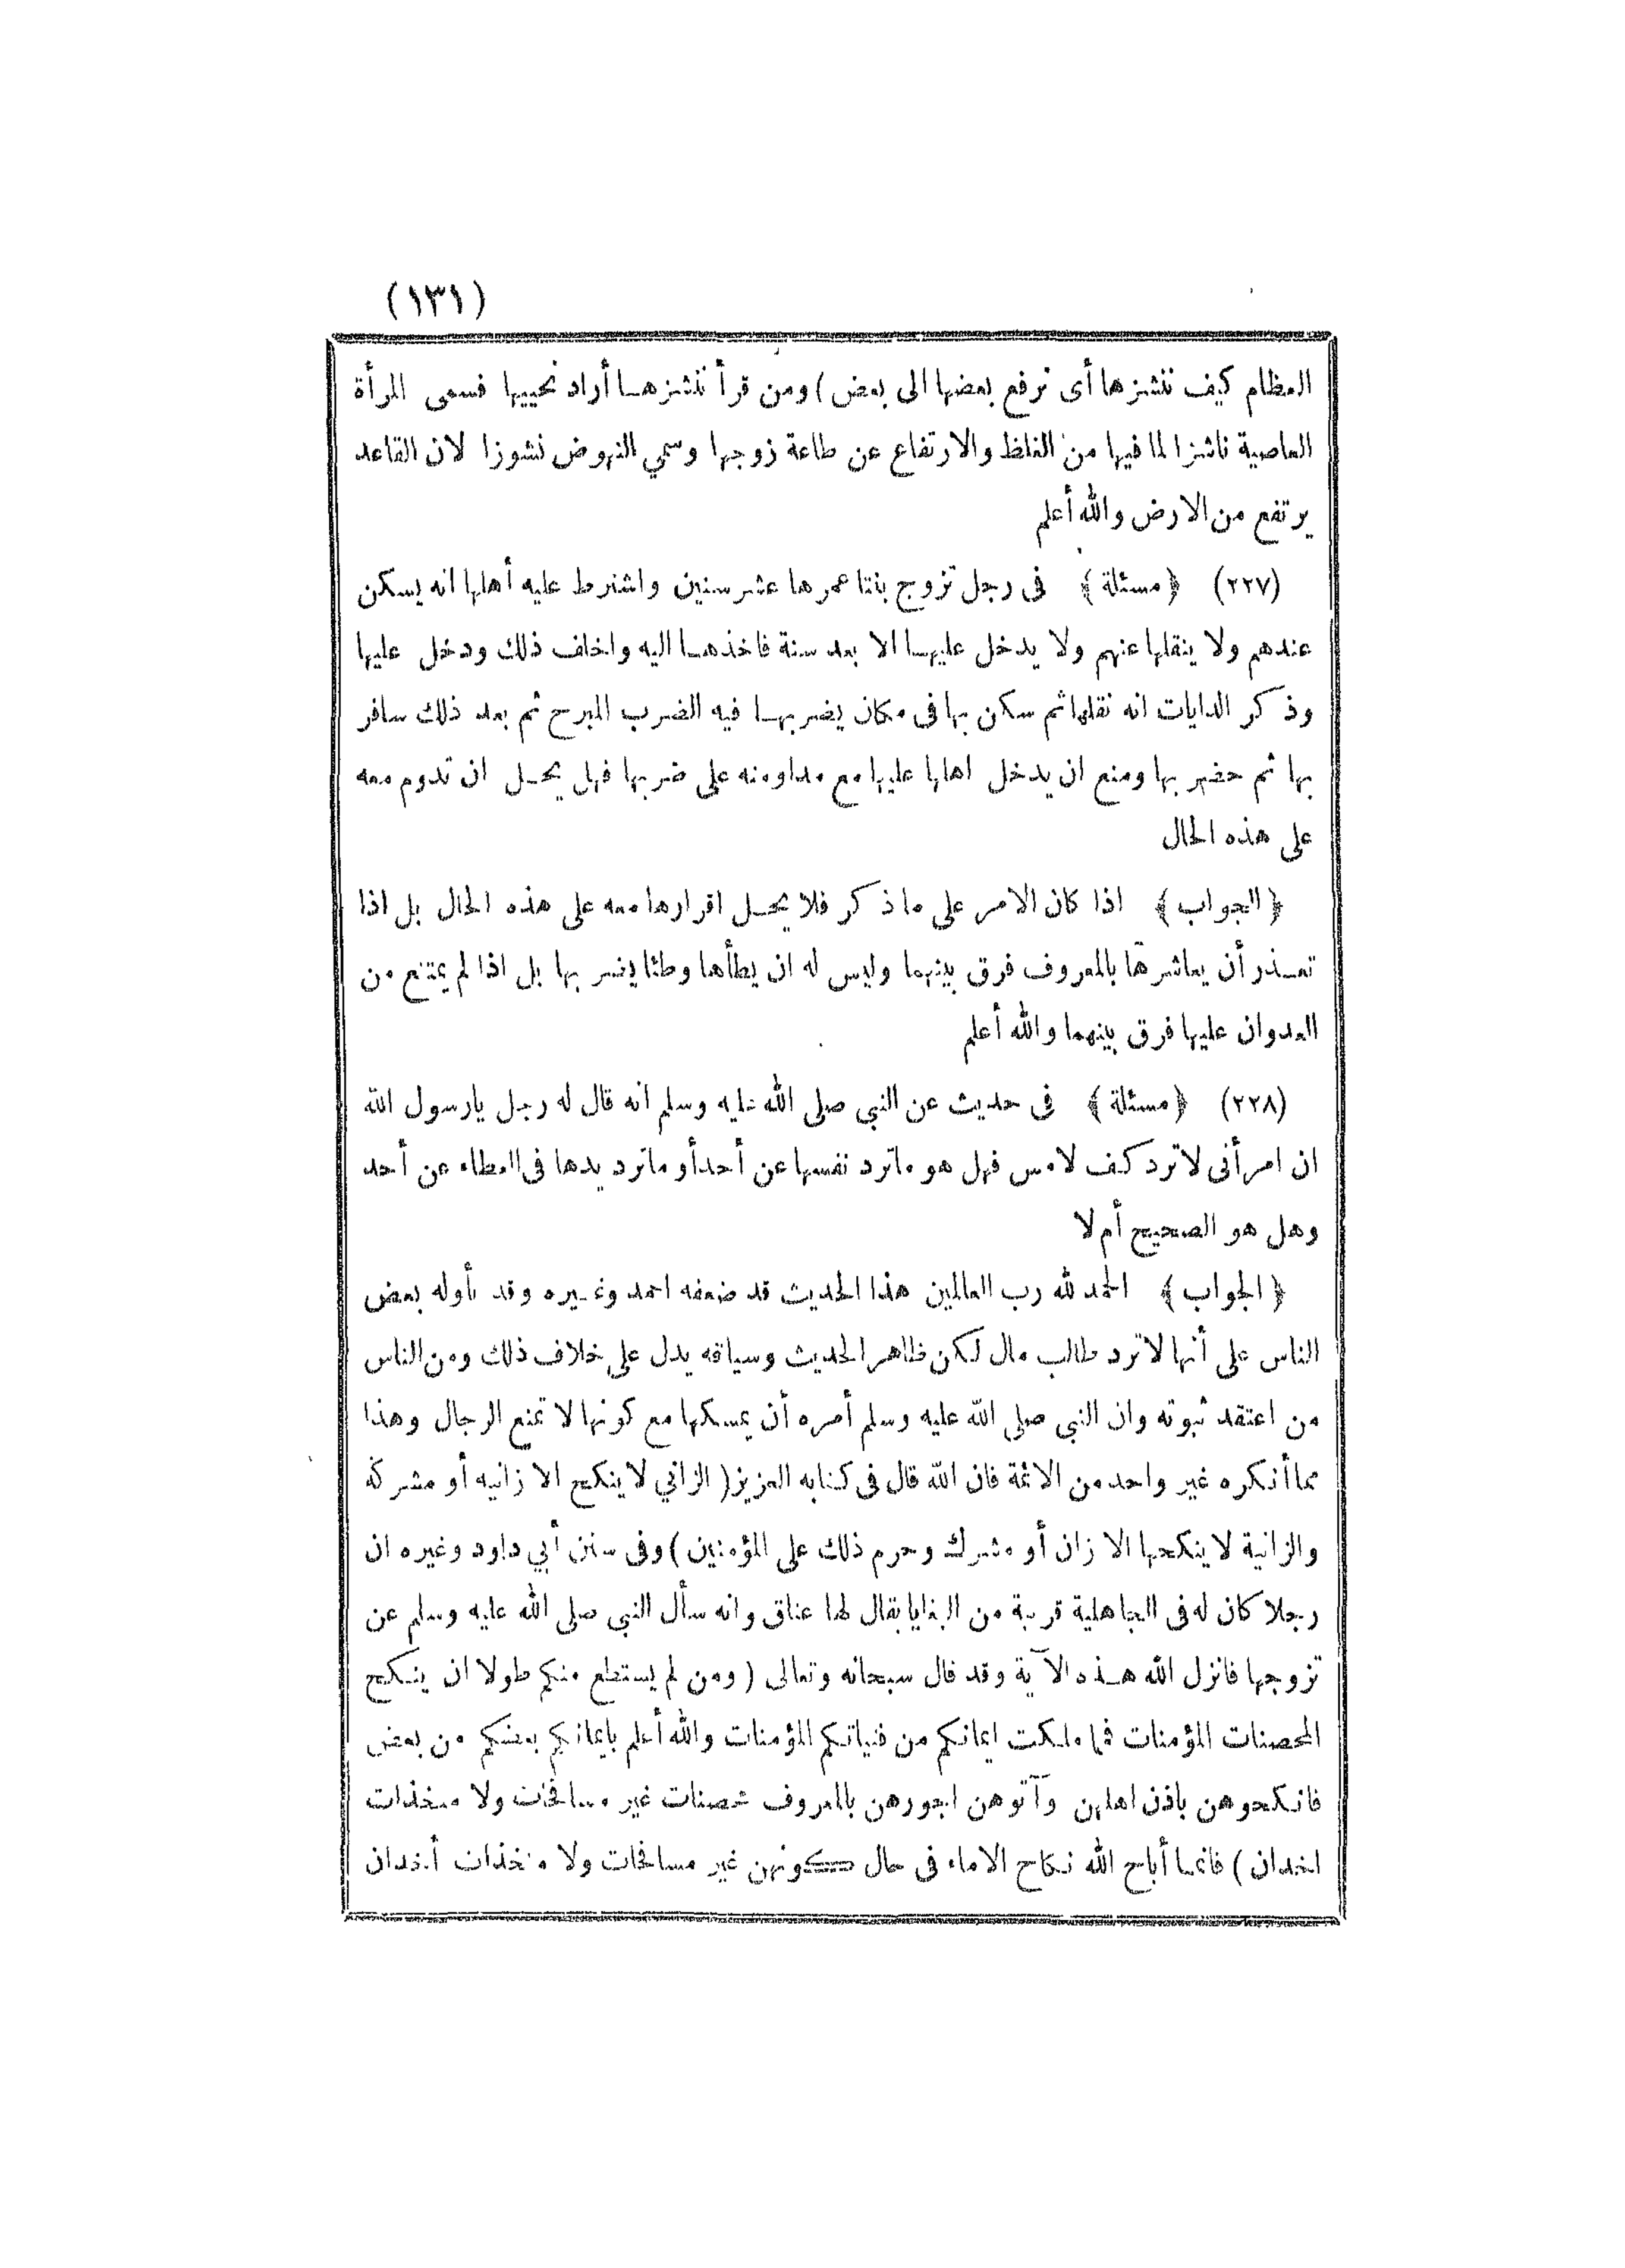 (١٣١)
العظام كيف ننشزها أى نرفع بعضها الى بعض ) ومن قرأ ننشزهـا أراد نحييها فسمى المرأة
العاصية ناشزا لما فيها من الغلظ والارتفاع عن طاعة زوجها وسمي النهوض نشوزا لان القاعد
يرتفع من الارض والله أعلم
(٢٢٧) ﴿ مسئلة ﴾ فى رجل تزوج بنتا عمرها عشر سنين واشترط عليه أهلها انه يسكن
عندهم ولا ينقلها عنهم ولا يدخل عليهـا الا بعد سنة فاخذهـا اليه واخلف ذلك ودخل عليها
وذكر الدايات انه نقلها ثم سكن بها فى مكان يضربهـا فيه الضرب المبرح ثم بعد ذلك سافر
بها ثم حضر بها ومنع ان يدخل اهلها عليها مع مداومته على ضربها فهل يحـل ان تدوم معه
على هذه الحال
﴿ الجواب ﴾ اذا كان الامر على ما ذكر فلا يحـل اقرارها معه على هذه الحال بل اذا
تعـذر أن يعاشرها بالمعروف فرق بينهما وليس له ان يطأها وطئا يضر بها بل اذا لم يمتنع من
العدوان عليها فرق بينهما والله أعلم
(٢٢٨) ﴿ مسئلة ﴾ فى حديث عن النبي صلى الله عليه وسلم انه قال له رجل يارسول الله
ان امرأتى لا ترد كف لامس فهل هو ماترد نفسها عن أحد أو ماترد يدها فى العطاء عن أحد
وهل هو الصحيح أم لا
﴿ الجواب ﴾ الحمد لله رب العالمين هذا الحديث قد ضعفه احمد وغـيره وقد تأوله بعض
الناس على أنها لا ترد طالب مال لكن ظاهر الحديث وسياقه يدل على خلاف ذلك ومن الناس
من اعتقد ثبوته وان النبي صلى الله عليه وسلم أمره أن يمسكها مع كونها لا تمنع الرجال وهذا
مما أنكره غير واحد من الائمة فان الله قال فى كتابه العزيز ( الزاني لا ينكح الا زانيه أو مشركة
والزانية لا ينكحها الا زان أو مشرك وحرم ذلك على المؤمنين ) وفى سنن أبي داود وغيره ان
رجلا كان له فى الجاهلية قرينة من البغايا يقال لها عناق وانه سأل النبي صلى الله عليه وسلم عن
تزوجها فانزل الله هـذه الآية وقد قال سبحانه وتعالى ( ومن لم يستطع منكم طولا ان ينكح
المحصنات المؤمنات فما ملكت ايمانكم من فتياتكم المؤمنات والله أعلم بايمانكم بعضكم من بعض
فانكحوهن باذن اهلهن وآتوهن اجورهن بالمعروف محصنات غير مسافحات ولا متخذات
اخدان ) فانمـا أباح الله نكاح الاماء فى حال كونهن غير مسافحات ولا متخذات أخدان